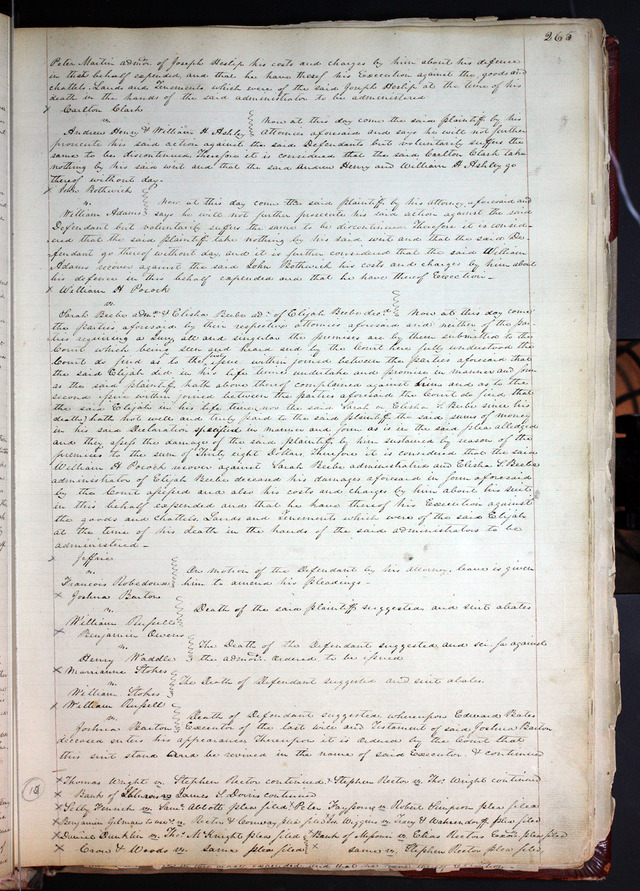 265
Peter Martin admor of Joseph Heslip his costs and charges by him about his defence
in that behalf expended, and that he have thereof his Execution against the goods and
chattels, Lands and Tenements which were of the said Joseph Heslip at the time of his
death in the hands of the said administrator to be administered
x Carlton Clark
vs. Now at this day come the said plaintiff by his
Andrew Henry & William H Ashley attornies aforesaid and says he will not further
prosecute his said action against the said Defendants but voluntarily suffers the
same to be discontinued. Therefore it is considered that the said Carlton Clark take
nothing by his said writ and that the said Andrew Henry and William H Ashley go
thereof without day.
x John Bothwick
vs. Now at this day come the said plaintiff by his attorney aforesaid and
William Adams says he will not further prosecute his said action against the said
Defendant but voluntarily suffers the same to be discontinued Therefore it is consid-
ered that the said plaintiff take nothing by his said writ and that the said De-
fendant go thereof without day, and it is further considered that the said William
Adams recover against the said John Bothwick his costs and charges by him about
his defence in this behalf expended and that he have thereof Execution -
x William H Pocock
vs.
Sarah Beebe admx & Elisha Beebe adr. of Elijah Beebe decd. Now at this day come
the parties aforesaid by their respective attornies aforesaid and neither of the par-
ties requiring a Jury, all and singular the premises are by them submitted to the
Court which being seen and heard and by the Court here fully understood the
Court do find as to the first issue within joined between the parties aforesaid that
the said Elijah did in his life time undertake and promise in manner and form
as the said plaintiff hath above thereof complained against him and as to the
second issue within joined between the parties aforesaid the Court do find that
the said Elijah in his life time nor the said Sarah & Elisha S. Beebe since his
death hath not well and truly paid to the said plaintiff the said sums of money
in his said Declaration specified in manner and form as is in the said plea alledged
and they assess the damage of the said plaintiff by him sustained by reason of the
premises to the sum of Thirty eight Dollars. Therefore it is considered that the said
William H Pocock recover against Sarah Beebe administratrix and Elisha S. Beebe
administrator of Elijah Beebe deceased his damages aforesaid in form aforesaid
by the Court assessed and also his costs and charges by him about his suit
in this behalf expended and that he have thereof his Execution against
the goods and chattels, Lands and Tenements which were of the said Elijah
at the time of his death in the hands of the said administrators to be
administered -
x Jeffrie
vs. On motion of the Defendant by his attorney, leave is given
Francois Robedoux him to amend his pleadings -
x Joshua Barton
vs. Death of the said plaintiff suggested and suit abates
William Russell
x Benjamin Owens
vs. The Death of the Defendant suggested and sci fa against
Henry Waddle the admor. ordered to be issued
x Marrianne Stokes
vs. The Death of Defendant suggested and suit abates
William Stokes
x William Russell
vs. Death of Defendant suggested, whereupon Edward Bates
Joshua Barton Executor of the last will and Testament of said Joshua Barton
deceased enters his appearance. Thereupon it is ordered by the Court that
this suit stand and be revived in the name of said Executor & continued
x Thomas Wright vs. Stephen Rector continued. x Stephen Rector vs. Thos. Wright continued
x Bank of Illinois vs James S. Davis continued
x Saml. Abbott plea filed. Peter vs Robert Simpson plea filed
x Benjamin vs. Rector & Conway, plea filed Wiggins vs. plea filed
x Daniel Dunklin vs. Thos. McKnight plea filed x Bank of Missouri vs. Elias Rector's plea filed
x Crow & Woods vs. same plea filed x same vs. Stephen Rector plea filed